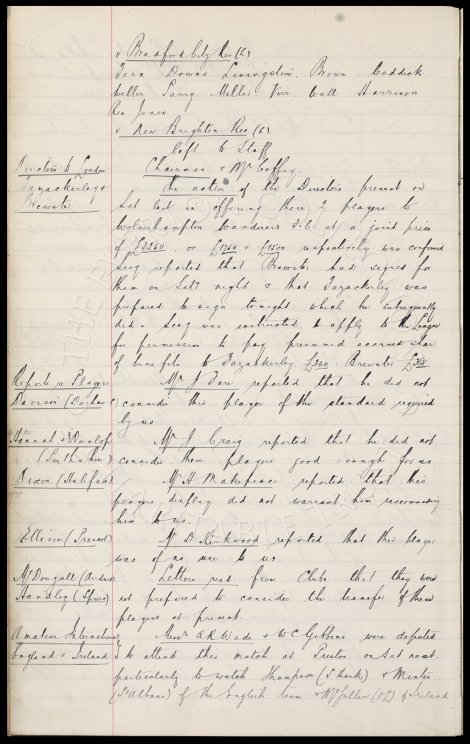 v Bradford City Res (h)
Fern Downs Livingstone Brown Caddick
Weller Parry Miller Virr Wall Harrison
Res Jones
v New Brighton Res (h)
left to Staff
Directors to London
Chairman & Mr Coffey.
Tazackerley &
Brewster
The action of the Directors present on
Sat last in offering these 2 players to
Wolverhampton Wanderers F.C. at a joint price
of £3250 or £1750 & £1500 respectively was confirmed
Secy reported that Brewster had signed for
them on Sat night & that Tazackerley was
prepared to sign tonight which he subsequently
did & Secy was instructed to apply to the League
for permission to pay presumed accrued share
of benefits to Tazackerley £360. Brewster
Reports re Players
Davison (Durham C)
Mr J Fare reported that he did not
consider this player of the standard required
by us
Hannah & Dunlop
(Perthshire)
Mr J Craig reported that he did not
consider these players good enough for us
Dixon (Halifax)
Mr H Makepeace reported that this
players display did not warrant him recommending
him to us.
Ellison (Prescot)
Mr D Kirkwood reported that this player
was of no use to us
McDougall (Airdrie)
Handley (Spurs)
Letters read from Clubs that they were
not prepared to consider the transfer of these
players at present.
Amateur International
England v Ireland
Messrs A R Wade & W C Gibbins were deputed
to attend this match at Preston on Sat next.
particularly to watch Thompson & Minter
(St Albans) of the English team & of Ireland